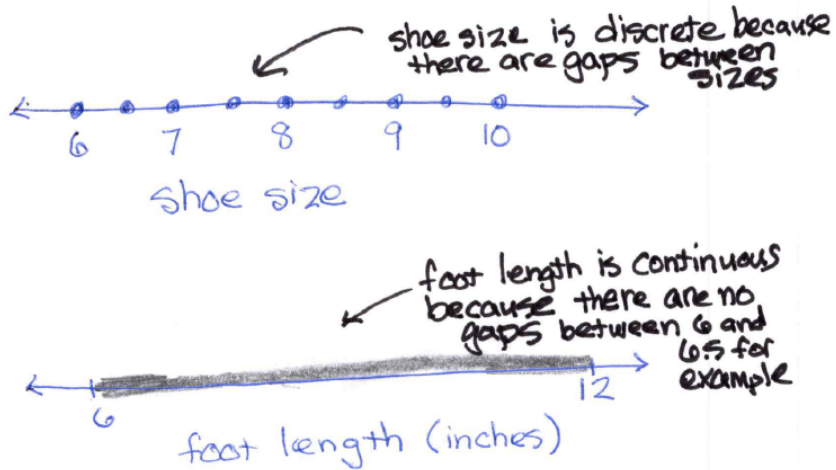 shoe size is discrete because
there are gaps between
sizes
6 7 8 9 10
shoe size
foot length is continuous
because there are no
gaps between 6 and
6.5 for
example
6 12
foot length (inches)